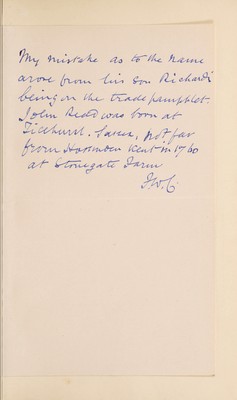 My mistake as to the name
arose from his son Richard's
being on the trade pamphlet.
John Redd was born at
Ticehurst. Sussex, not far
from Hawkhurst Kent in 1760
at Stonegate Farm
F.W.G.